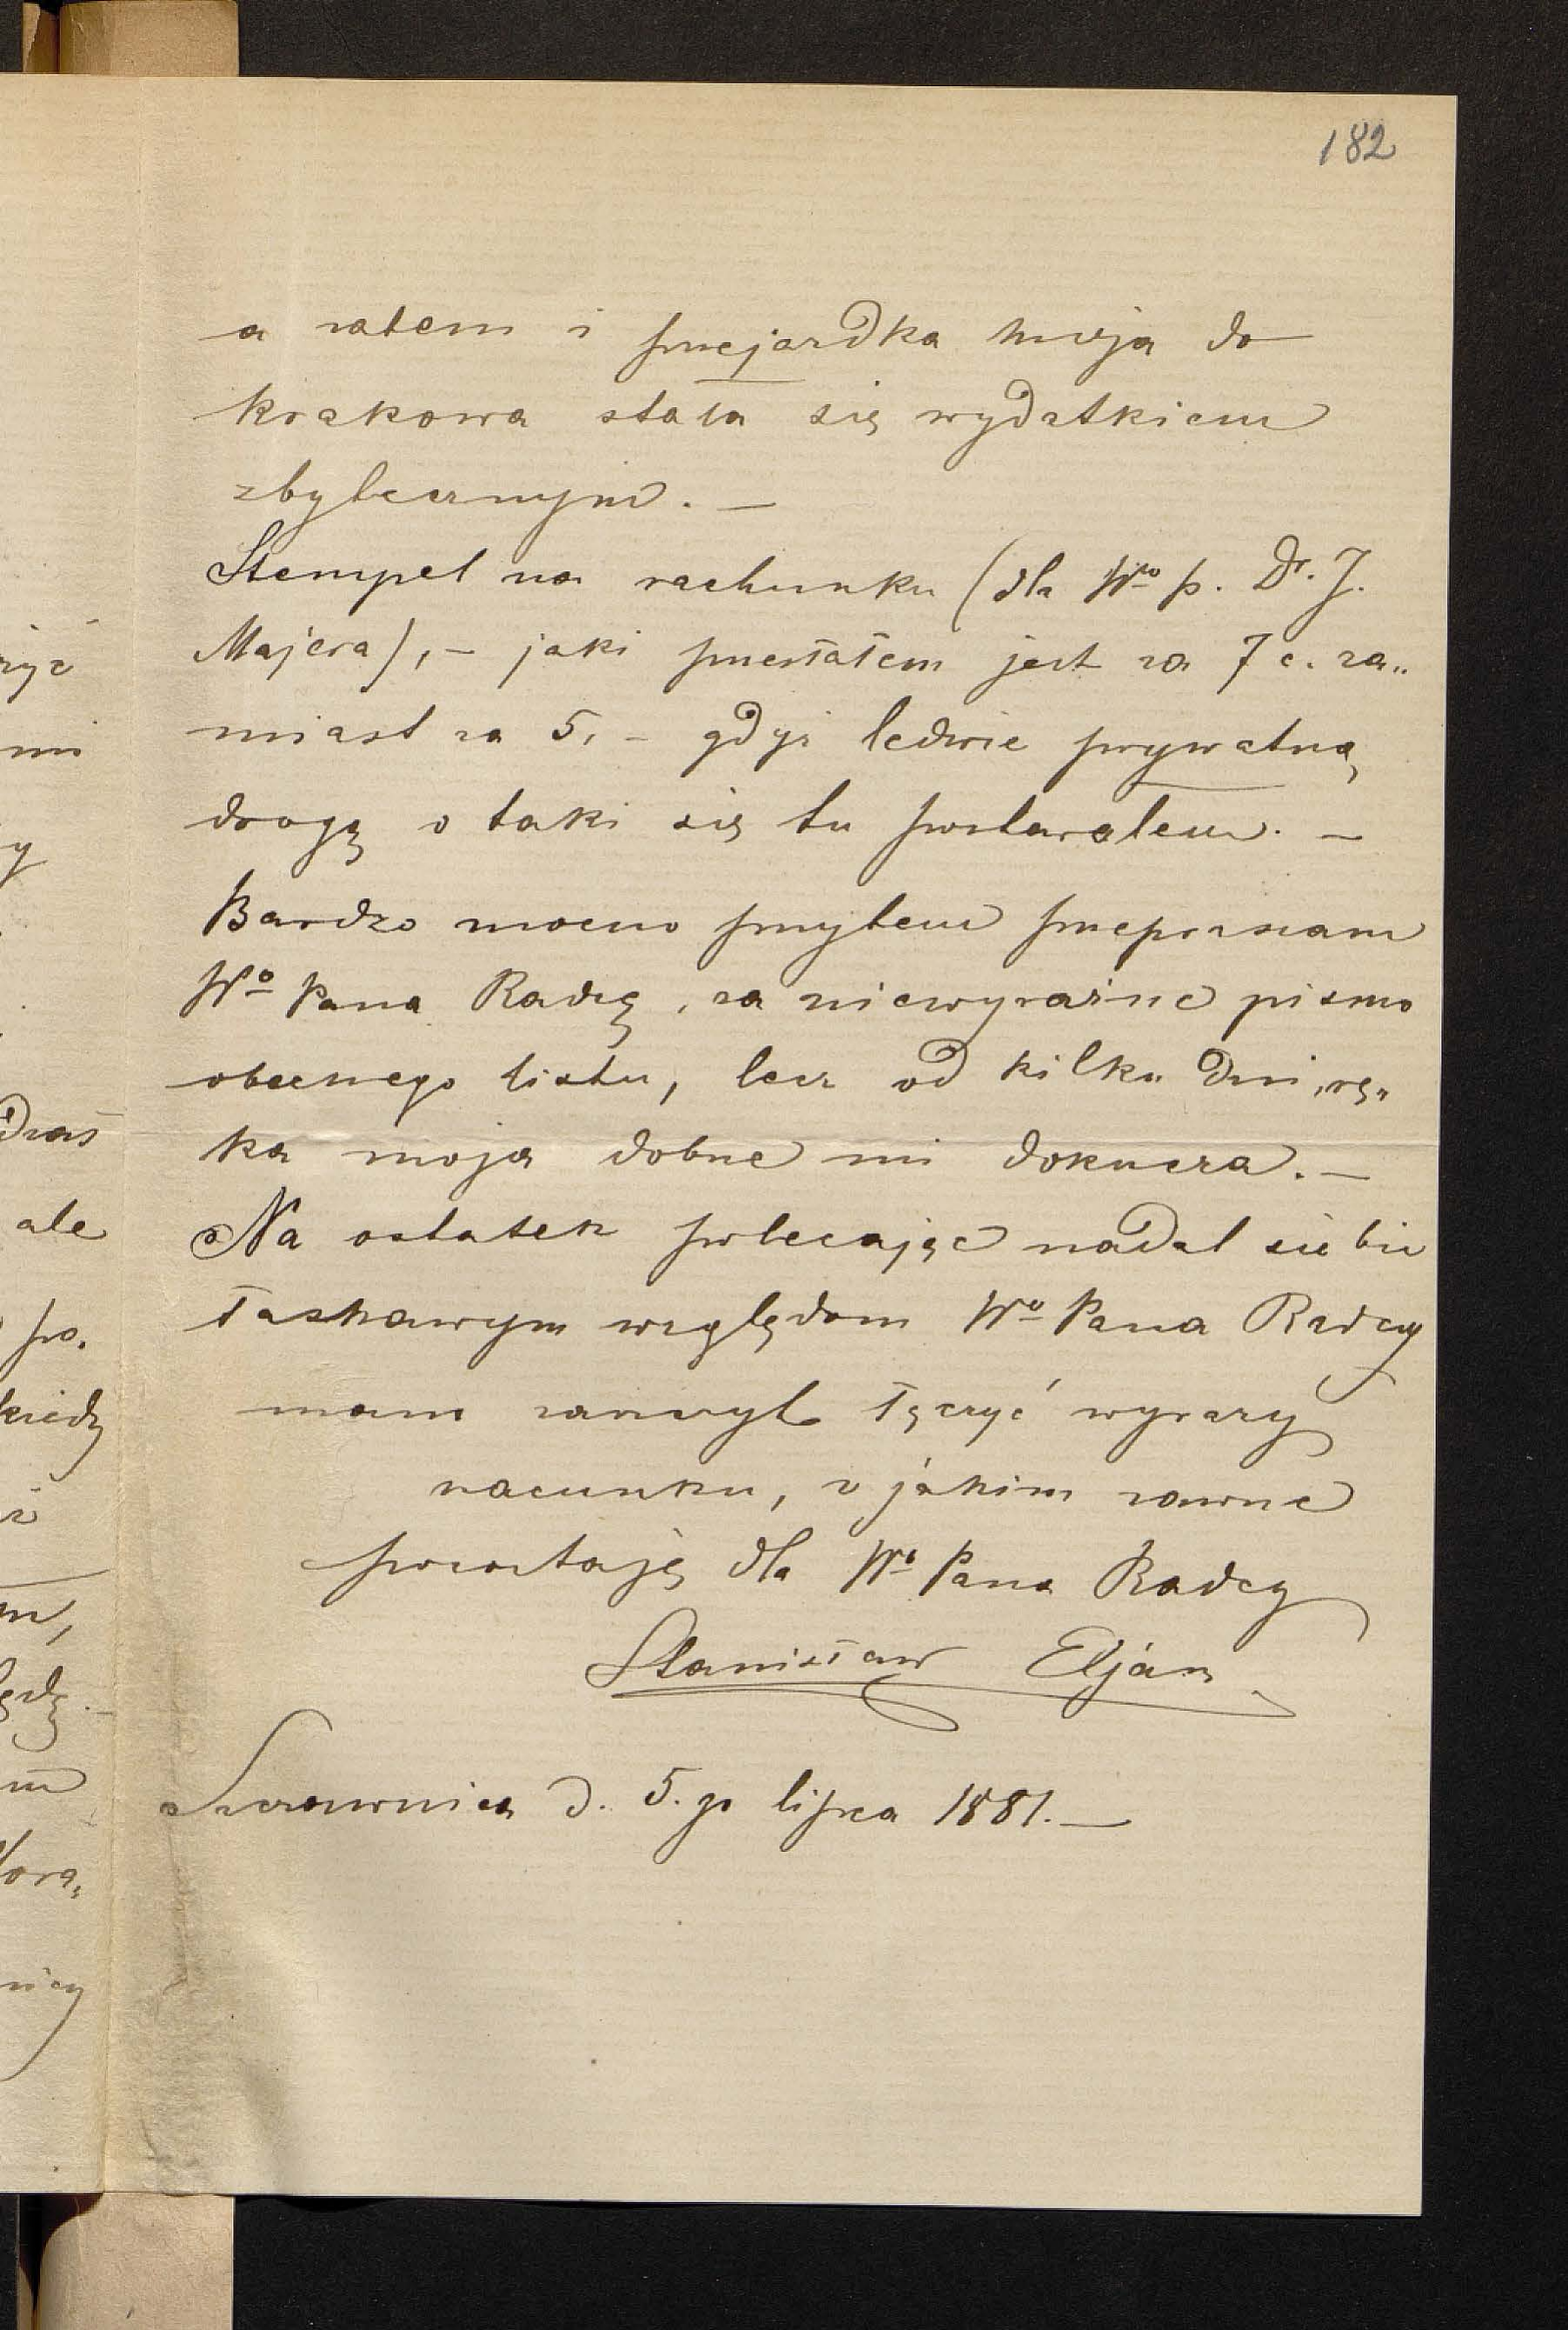 182
a zatem i przejazdka moja do
Krakowa stała się wydatkiem
zbytecznym. —
Stempel na rachunku (dla Wgo p. Dr. J.
Majera), – jaki przesłałem jest za 7 c. za„
miast za 5, – gdyż ledwie prywatną
drogą o taki się tu postarałem. —
Bardzo mocno przytem przepraszam
Wo Pana Radzcę, za niewyraźne pismo
obecnego listu, lecz od kilku dni, rę„
ka moja dobrze mi dokucza. —
Na ostatek polecając nadal siebie
łaskawym względom Wo Pana Radcy
mam zaszczyt łączyć wyrazy
szacunku, z jakim zawsze
pozostaję dla Wo Pana Radcy
Stanisław Eljasz
Szczawnica d. 5. go lipca 1881. —
ale
po.